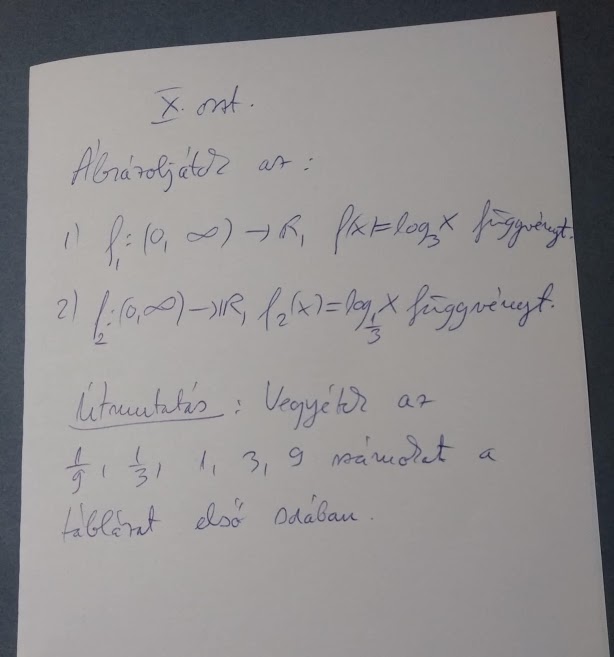 X. oszt.
Ábrázoljátok az:
1) f₁: (0, ∞) → R, f(x) = log₃x függvényt.
2) f₂: (0, ∞) → R, f₂(x) = log_{1/3} x függvényt.
Útmutatás: Vegyétek az
1/9, 1/3, 1, 3, 9 számokat a
táblázat első sorában.